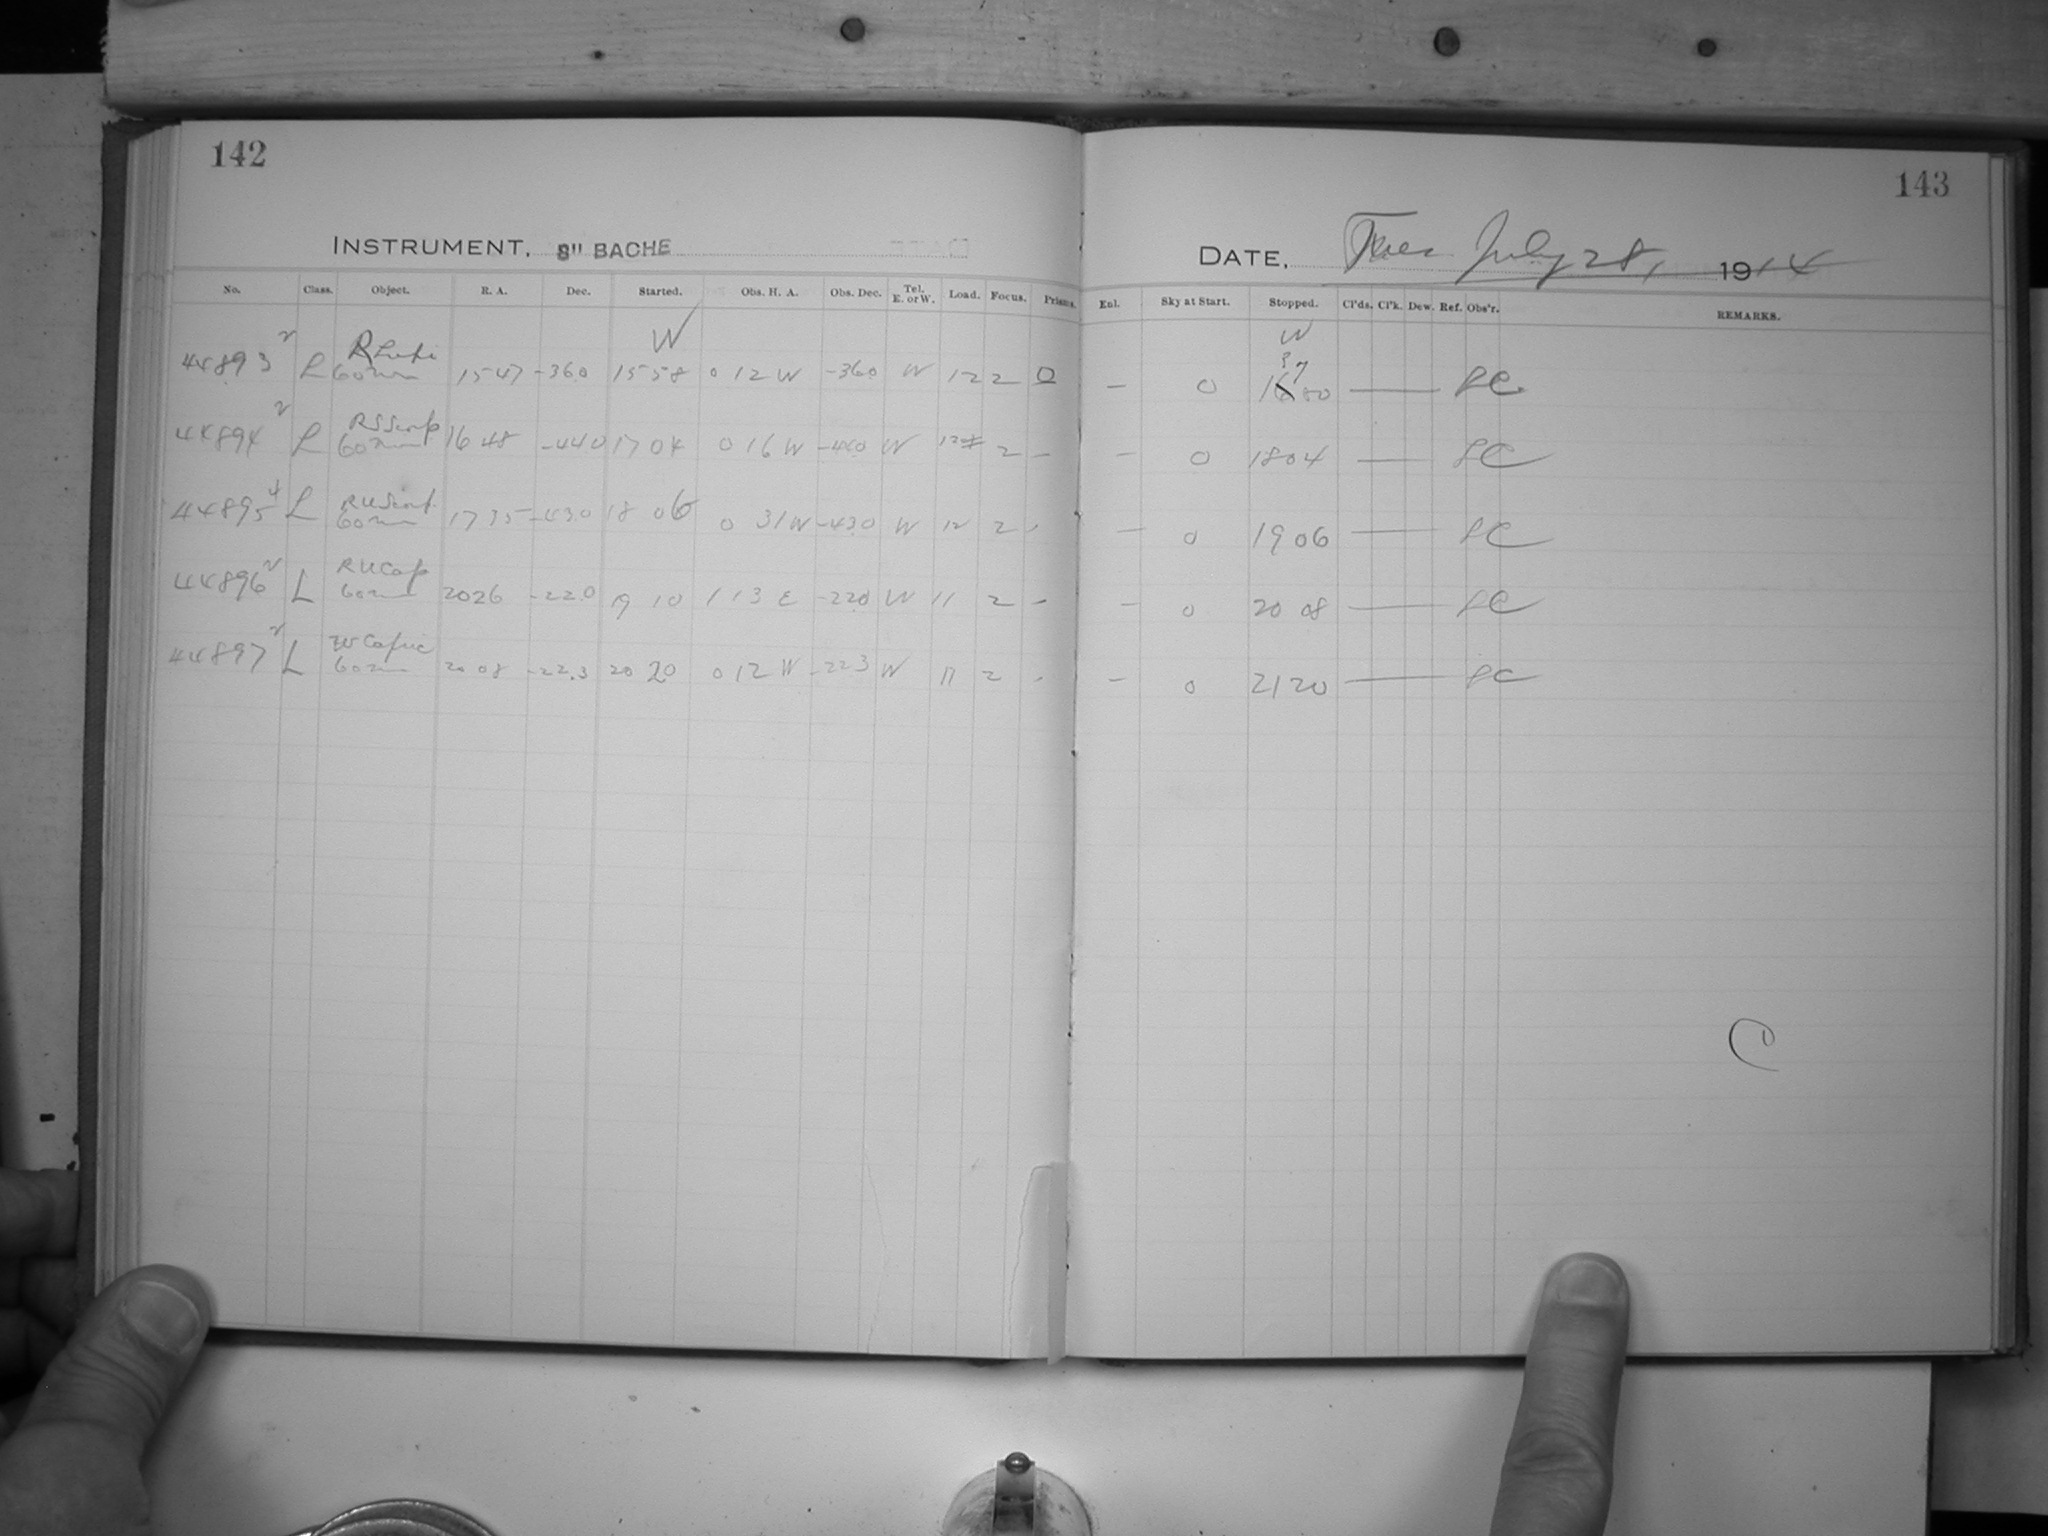 142
143
INSTRUMENT, 8" BACHE
DATE, Tues July 28, 1914
No. Class. Object. R. A. Dec. Started. Obs. H. A. Obs. Dec. Tel. E. or W. Load. Focus. Prisms. Enl. Sky at Start. Stopped. Cl'ds. Cl'k. Dew. Ref. Obs'r. REMARKS.
W W
44893 2 L R Lupi 60m 15 47 -36.0 15 58 0 12 W -36.0 W 12 2 0 — 0 — LC
44894 2 L RS Scorp 60m 16 48 -44.0 17 04 0 16 W -44.0 W 12 2 — — 0 18 04 — LC
44895 4 L RU Scorp 60m 17 35 -43.0 18 06 0 31 W -43.0 W 12 2 - — 0 19 06 — LC
44896 2 L RU Cap 60m 20 26 -22.0 19 10 1 13 E -22.0 W 11 2 - — 0 20 08 — LC
44897 2 L Capric 60m 20 08 -22.3 20 20 0 12 W -22.3 W 11 2 - — 0 21 20 — LC